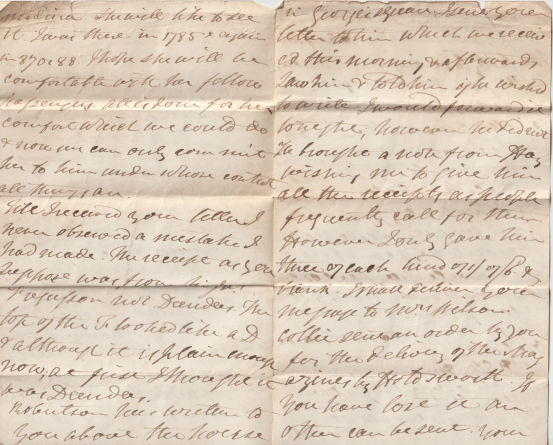 she will like to see
it. I was there in 1785 & again
in 87 or 88. I hope she will be
comfortable with her fellow
passengers. All is done for her
comfort which we could do
& now we can only commit
her to him under whose control
all things are
Till I received your letter I
never observed a mistake I
had made. The receipt as you
suppose was from
Ferguson not Dundas. The
top of the F looked like a D
& although it is plain enough
now, at first I thought it
was Dundas.
Robertson has written to
you above the house
in George's Square. I sent your
letter to him which we receiv
ed this morning & afterwards
saw him & told him if he wished
to write I would forward it
however he did not
He brought a note from
wishing me to give him
all the receipts as people
frequently call for them
However I only gave him
three of each kind
blank. I shall deliver your
message to Mrs Wilson.
Collie sent an order by you
for the delivery of the Mag
azines by Holdsworth. If
you have lost it an
other can be sent. Your